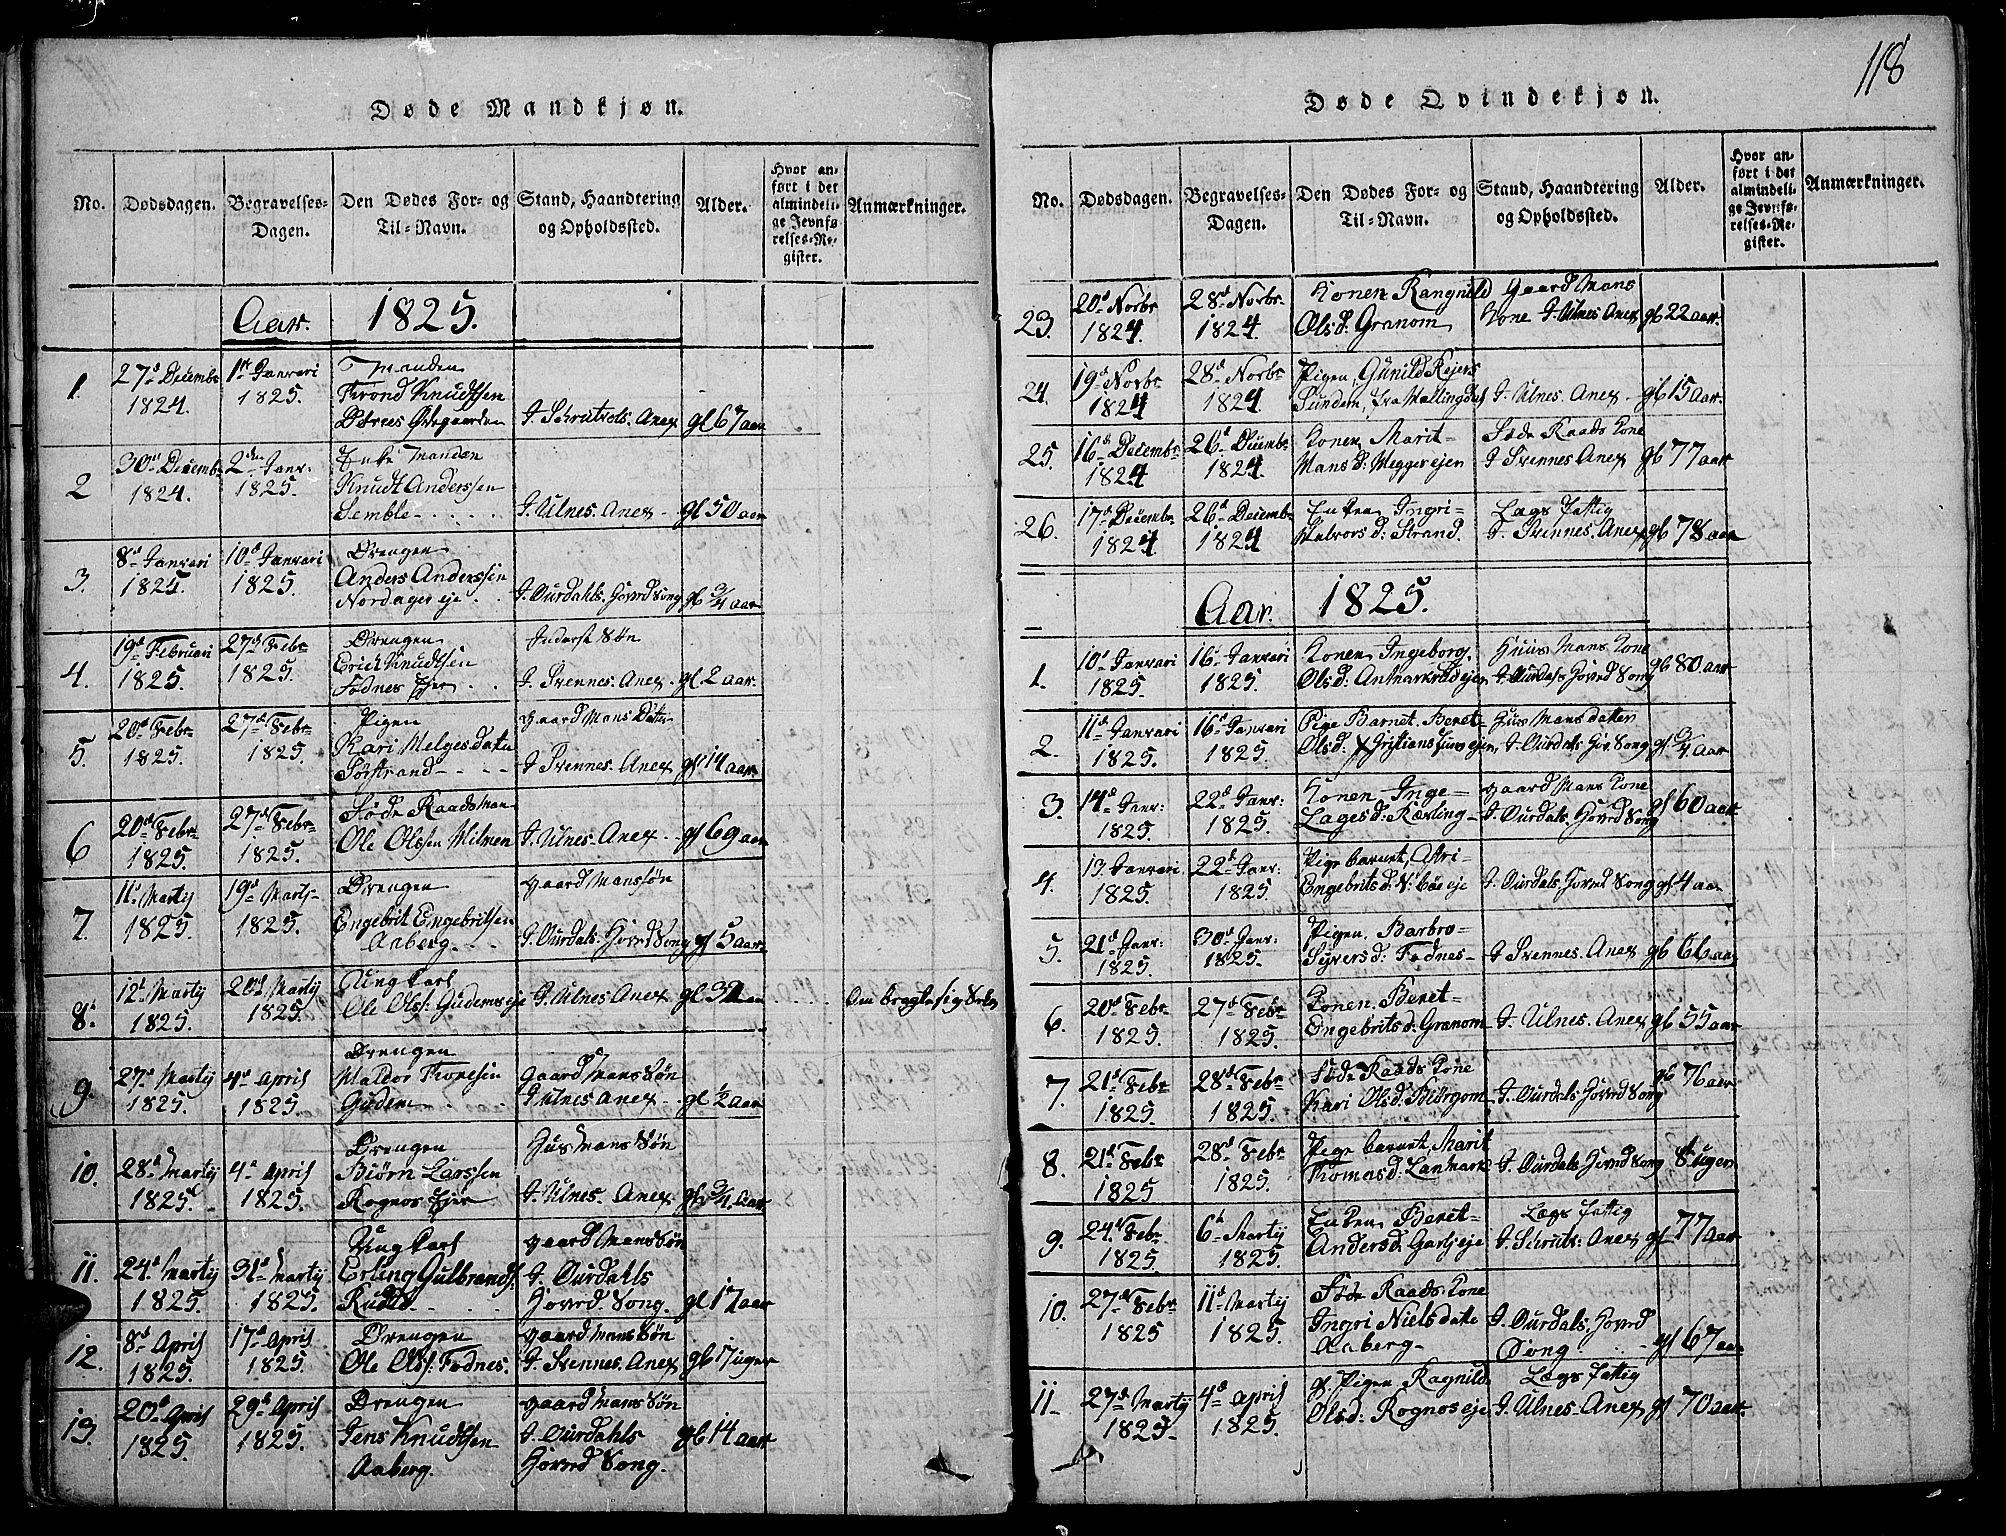 118
Døde Mandkjøn.
No. Dødsdagen. Begravelses-Dagen. Den Dødes For- og Til-Navn. Stand, Haandtering og Opholdssted. Alder. Hvor anført i det almindelige Jevnførelses-Register. Anmærkninger.
Aar. 1825.
1. 27d Decembr 1824. 1ste Janvari 1825. Manden Trond Knudtsen Østegaarden I. Schrutvols. Anex gl 67 aar
2 30te Decembr 1824. 2den Janr: 1825. Enke Manden Knudt Anderssen Semble I. Ulnes. Anex gl 50 aar
3. 8d Janvari 1825. 10d Janvari 1825. Drengen Anders Anderssen Nordager eje I. Ourdahls. Hovrd Song gl 3/4 aar
4. 19d Februari 1825. 27d Febr 1825. Drengen Erich Knudtsen Fodnes Ejer Inderst Søn I. Svennes. Anex gl 2 aar.
5. 20d Febr 1825. 27d Febr 1825. Pigen Kari Helgesdatter Sørstrand gaard Mans Datter I. Svennes. Anex gl 14 aar.
6 20d Febr 1825. 27d Febr 1825. Føde Raads Man Ole Olssen Wilmen I. Ulnes. Anex gl 69 aar
7. 11d Martij 1825. 19d Martij 1825. Drengen Engebrit Engebritsen Aaberg gaard Mans søn I. Ourdals. Hovrd Song gl 5 aar
8. 12d Martij 1825. 20d Martij 1825. Ung karl Ole Olss: Gudems eje I. Ulnes Anex gl 32 aar Om bragte sig Selv
9. 27d Martij 1825. 4d April 1825. Drengen Haldor Thoresen Gudem gaard Mans Søn I Ulnes Anex gl 1/2 aar
10. 28d Martij 1825. 4d April 1825. Drengen Biørn Larssen Rognos Ejer Hus Mans Søn I. Ulnes. Anex gl 3/4 Aar
11. 24d Martij 1825. 31d Martij 1825. Ung karl Erling Gulbrands. gaard Mans Søn I. Ourdahls Hovrd Song. gl 17 aar
12. 8d April 1825. 17d April 1825. Drengen Ole Ols. Fodnes. gaard Mans Søn I. Svennes. Anex gl 17 uger
13. 20d April 1825. 29d April 1825. Drengen Jens Knudtsen Aaberg. gaard Mans Søn I. Ourdahls Hovrd Song. gl 14 aar
Døde Qvindekjøn.
No. Dødsdagen. Begravelses-Dagen. Den Dødes For- og Til-Navn. Stand, Haandtering og Opholdssted. Alder. Hvor anført i det almindelige Jevnførelses-Register. Anmærkninger.
23. 20d Novbr 1824. 28d Novbr. 1824. Konen Rangnild Olsd: Granom gaard Mans Kone I. Ulnes Anex gl 22 aar.
24. 19d Novbr 1824 28d Novbr 1824. Pigen, Gunild Rejers Sundem, fra Hallingdal I. Ulnes. Anex gl 15 aar.
25. 16d Decembr 1824 26d Decembr 1824. Konen Marit Hans d: Meggerejen Føde Raads Kone I Svennes Anex gl 77 aar
26. 17d Decembr 1824 26d Decembr 1824 Enken Ingri Halvors d: Strand. Lægs fattig I. Svennes. Anex gl 78 aar
Aar. 1825.
1. 10d Janvari 1825. 16d Janvari 1825. Konen Ingeborg Olsd: Huus Mans Kone I Ourdals Hovrd Song gl 80 aar
2. 11d Janvari 1825. 16d Janvari 1825. Pige Barnet. Beret Olsd: Hus Mans datter I. Ourdals Hov. Song gl 3/4 aar
3. 14d Janr: 1825. 22d Janr: 1825. Konen Inge Lages d: Røvling gaard Mans Kone I. Ourdals Hovrd Song gl 60 aar
4. 13. Janvari 1825. 22d Janr: 1825. Pige barnet, Engebrits d: N: Bøe eje I. Ourdals. Hovrd Song gl 4 aar
5. 21d Janr: 1825. 30d Janr: 1825. Pigen Barbro Syvers d: Fodnes I Svennes. Anex gl 66 aar
6. 20d Febr 1825. 27d Febr 1825. Konen. Beret Engebrits d: Granom I. Ulnes. Anex gl 55 aar
7. 21d Febr 1825. 28d Febr 1825. Føde Raads Kone Kari Ols d: Biørgom I. Ourdals. Hovrd Song gl 76 aar
8. 21d Febr 1825 28d Febr 1825. Pige barnet, Marit Thomas d: Lanmark I. Ourdals Hovrd Song 8 uger
9. 24d Febr. 1825. 6d Martij 1825. Enken Beret Anders d: Lægs fattig I. Schrutv: Anex gl 77 aar
10. 27d Febr 1825 11d Martij 1825. Føde Raads Kone Ingri Niels datter Aaberg I. Ourdals. Hovrd Song gl 67 aar
11. 27d Martij 1825. 4d April 1825. gl. Pigen Ragnild Olsd: Rognos eje Lægs fattig I. Ulnes. Anex gl 70 aar.